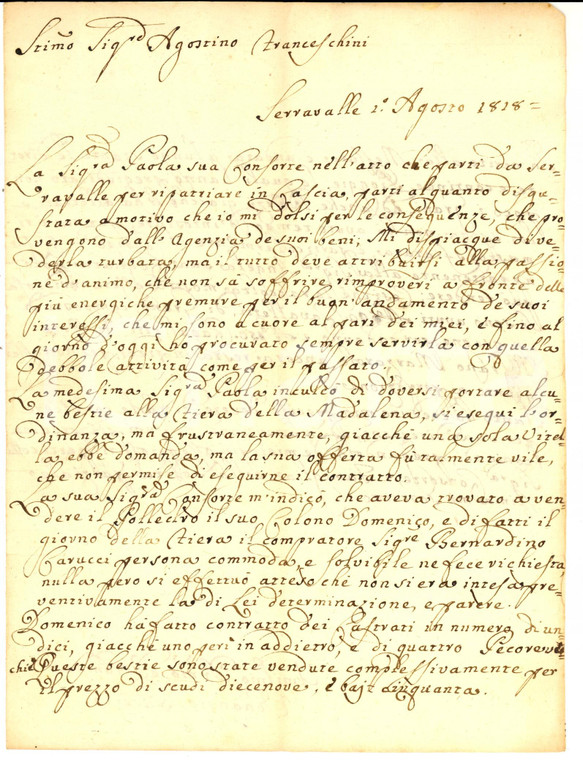 Stimo Sigrd Agostino Franceschini
Serravalle 1.º Agosto 1818=
La Sigra Paola sua Consorte nell'atto che partì da Ser=
ravalle per ripatriare in Cascia, partì alquanto disgu=
stata a motivo che io mi dolsi per le conseguenze, che pro=
vengono dall'Agenzia de suoi beni, Mi dispiacque di ve=
derla turbata, ma il tutto deve attribuirsi alla passio=
ne d'animo, che non sà soffrire rimproveri a fronte delle
più energiche premure per il buon andamento de suoi
interessi, che mi sono a cuore al pari dei miei, e fino al
giorno d'oggi ho procurato sempre servirla con quella
debbole attività come per il passato.
La medesima Sigra Paola inculcò di doversi portare alcu=
ne bestie alla Fiera della Madalena, si eseguì l'or=
dinanza, ma frustraneamente, giacchè una sola Vitel=
la ebbe domanda, ma la sua offerta fù talmente vile,
che non permise di eseguirne il contratto.
La sua Sigra Consorte m'indicò, che aveva trovato a ven=
dere il Polledro il suo Colono Domenico, e di fatti il
giorno della Fiera il compratore Sigre Bernardino
Carucci persona commoda, e solvibile ne fece richiesta,
nulla però si effettuò atteso che non si era intesa pre=
ventivamente la di Lei determinazione, e parere.
Domenico ha fatto contratto dei Castrati in numero di un=
dici, giacchè uno perì in addietro, e di quattro Pecore vec=
chie Queste bestie sono state vendute complessivamente per
il prezzo di scudi diecenove, e bajt cinquanta.